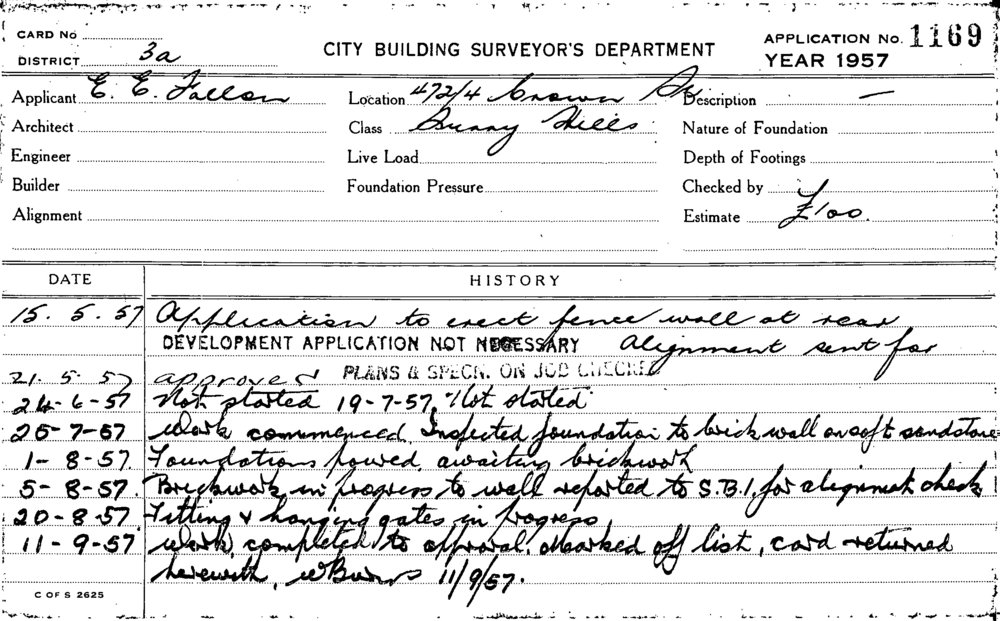 CARD No
DISTRICT 3a
CITY BUILDING SURVEYOR'S DEPARTMENT
APPLICATION No. 1169
YEAR 1957
Applicant E. E. Fallon
Location 472/4 Crown St
Description —
Architect
Class Surry Hills
Nature of Foundation
Engineer
Live Load
Depth of Footings
Builder
Foundation Pressure
Checked by
Alignment
Estimate £100.
DATE HISTORY
15. 5. 57 Application to erect fence wall at rear
DEVELOPMENT APPLICATION NOT NECESSARY Alignment sent for
21. 5. 57 approved PLANS & SPECN. ON JOB CHECKED
24-6-57 Not started 19-7-57, Not started
25-7-57 Work commenced. Inspected foundation to brick wall on soft sandstone
1-8-57. Foundations poured, awaiting brickwork
5-8-57. Brickwork in progress to wall reported to S.B.I. for alignment check
20-8-57. Fitting & hanging gates in progress,
11-9-57 Work, completed to approval. Marked off list, card returned
herewith, W Burns 11/9/57.
C OF S 2625